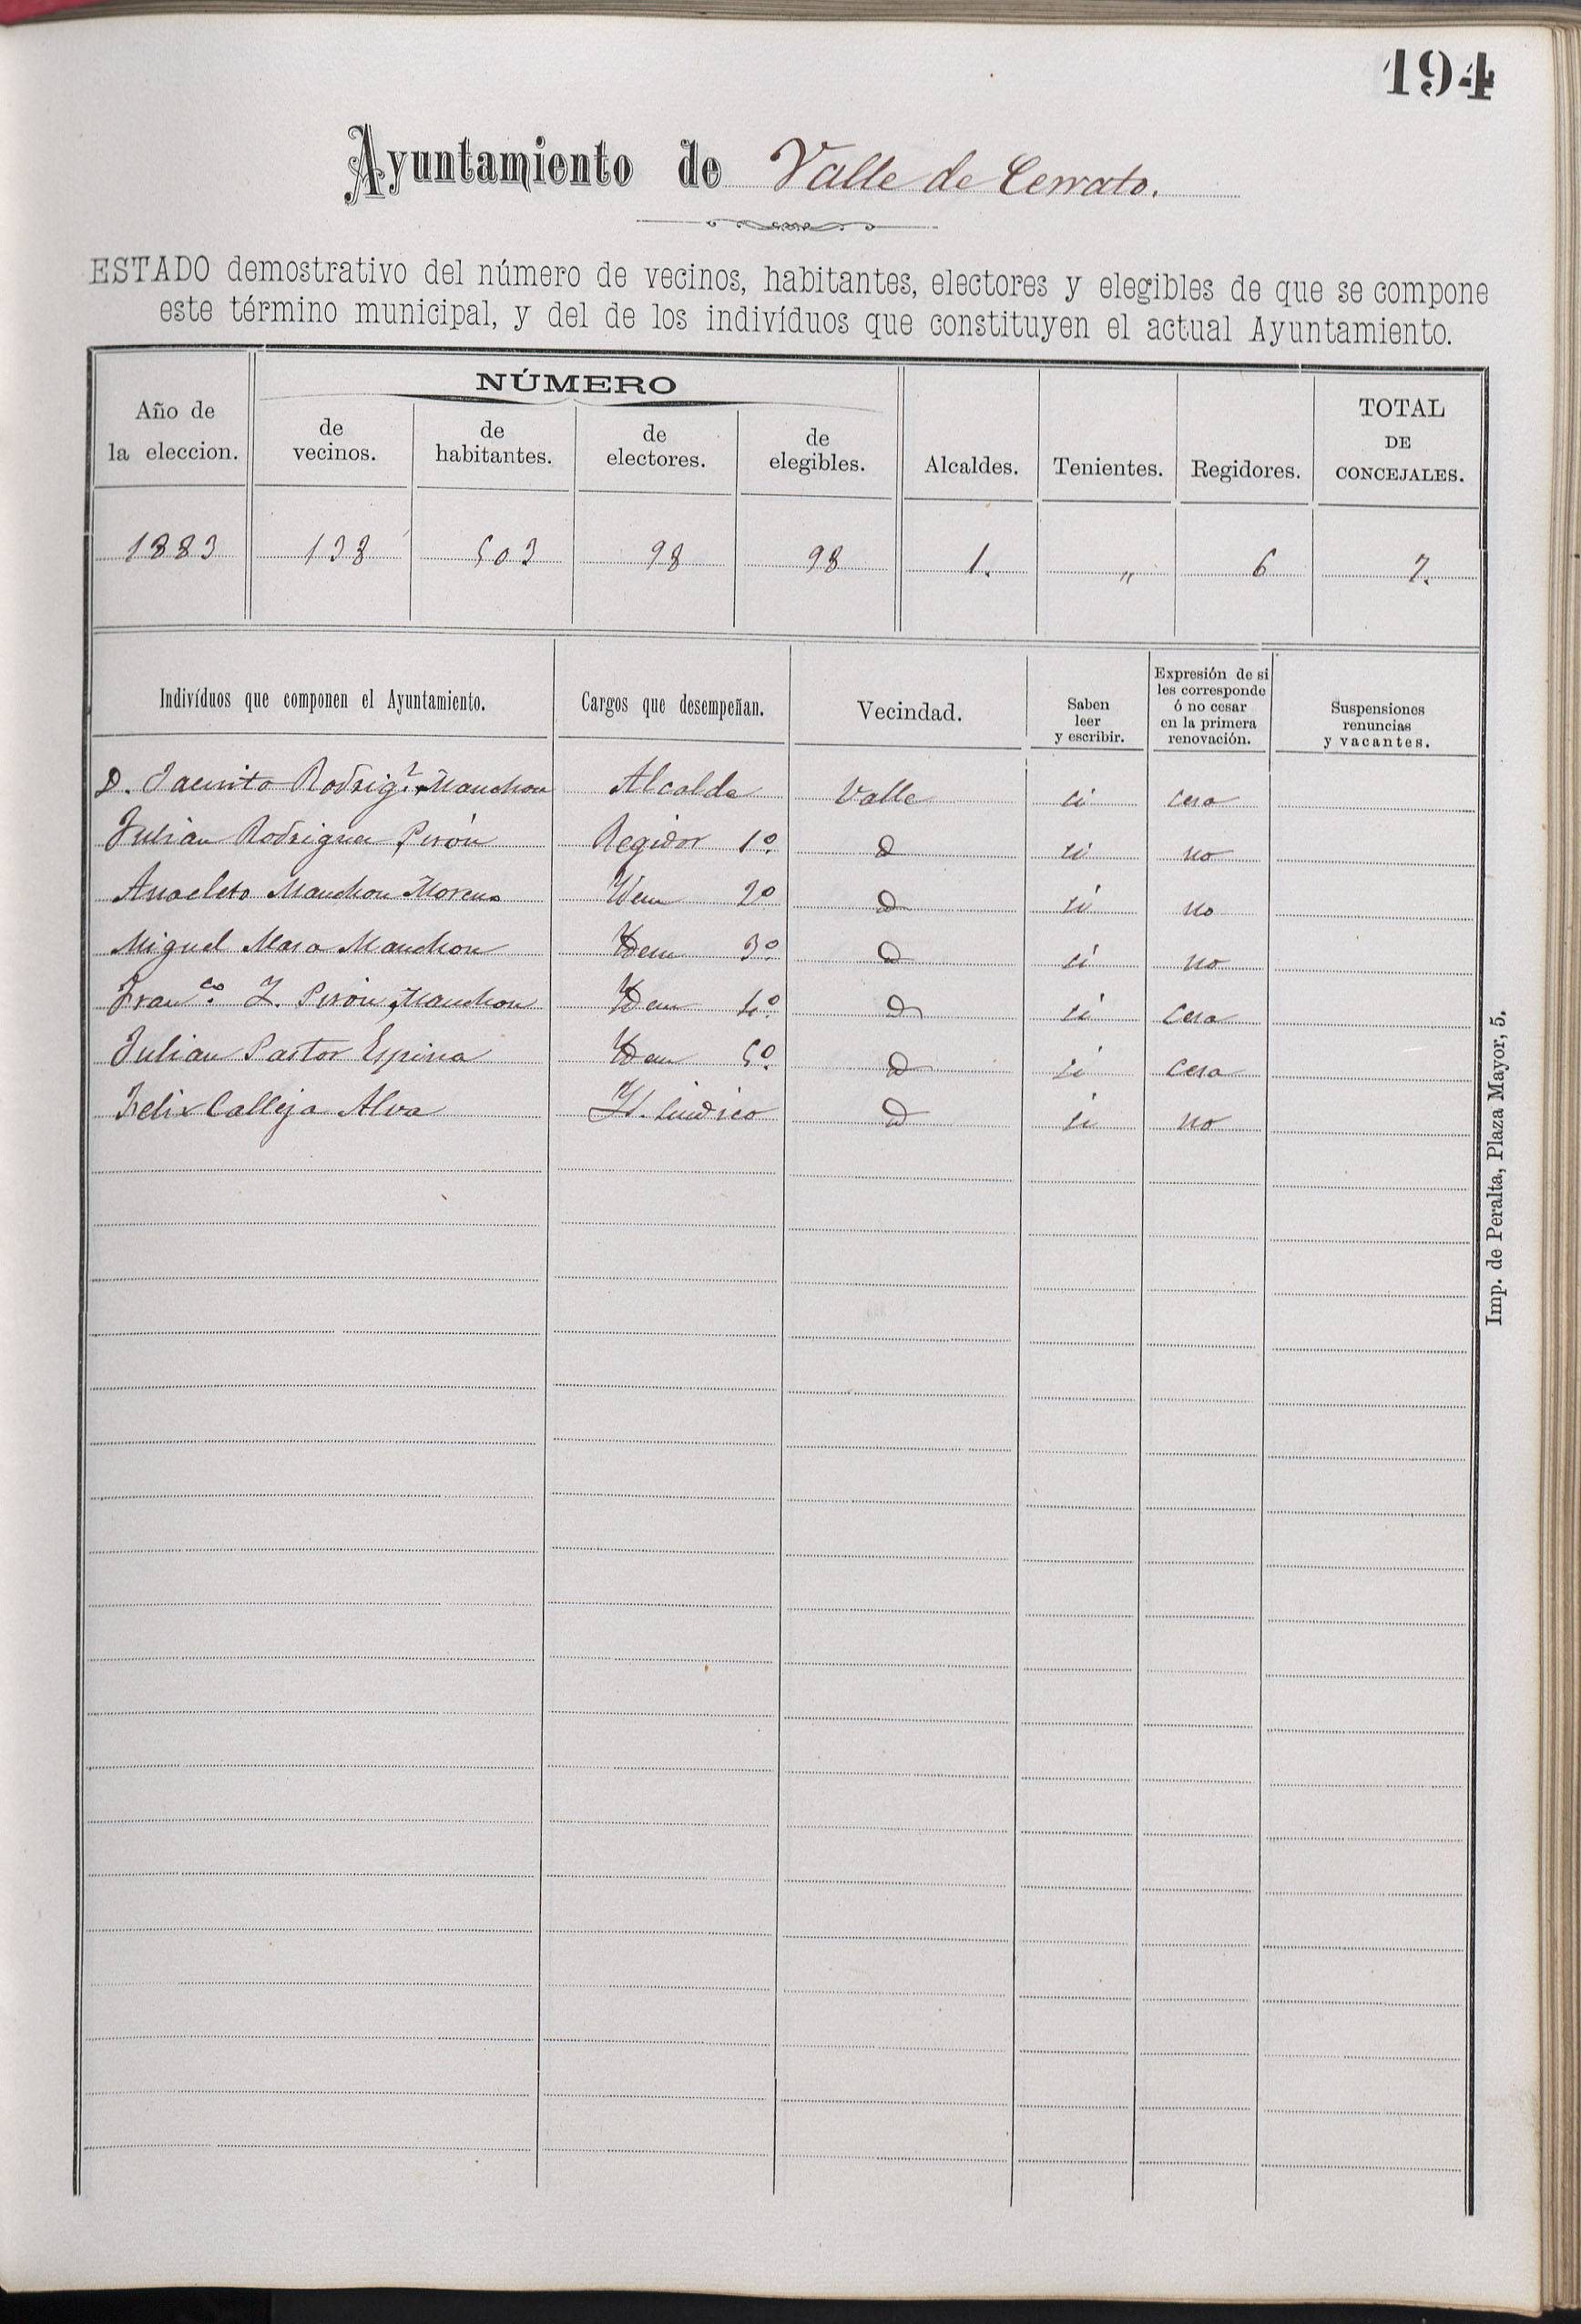 194
Ayuntamiento de Valle de Cerrato.
ESTADO demostrativo del número de vecinos, habitantes, electores y elegibles de que se compone
este término municipal, y del de los indivíduos que constituyen el actual Ayuntamiento.
Año de la eleccion. NÚMERO de vecinos. de habitantes. de electores. de elegibles. Alcaldes. Tenientes. Regidores. TOTAL DE CONCEJALES.
1883 138 503 98 98 1. " 6 7.
Indivíduos que componen el Ayuntamiento. Cargos que desempeñan. Vecindad. Saben leer y escribir. Expresión de si les corresponde ó no cesar en la primera renovación. Suspensiones renuncias y vacantes.
D. Jacinto Rodrigz. Manchon Alcalde Valle si cesa
Julian Rodriguez Pirón Regidor 1º. D si no
Anacleto Manchon Moreno Idem 2º D si no
Miguel Maso Manchon Idem 3º. D si no
Franco. Z. Pirón Manchon Idem 4º. D si cesa
Julian Pastor Espina Idem 5º. D si cesa
Felix Calleja Alva Id. sindico D si no
Imp. de Peralta, Plaza Mayor, 5.